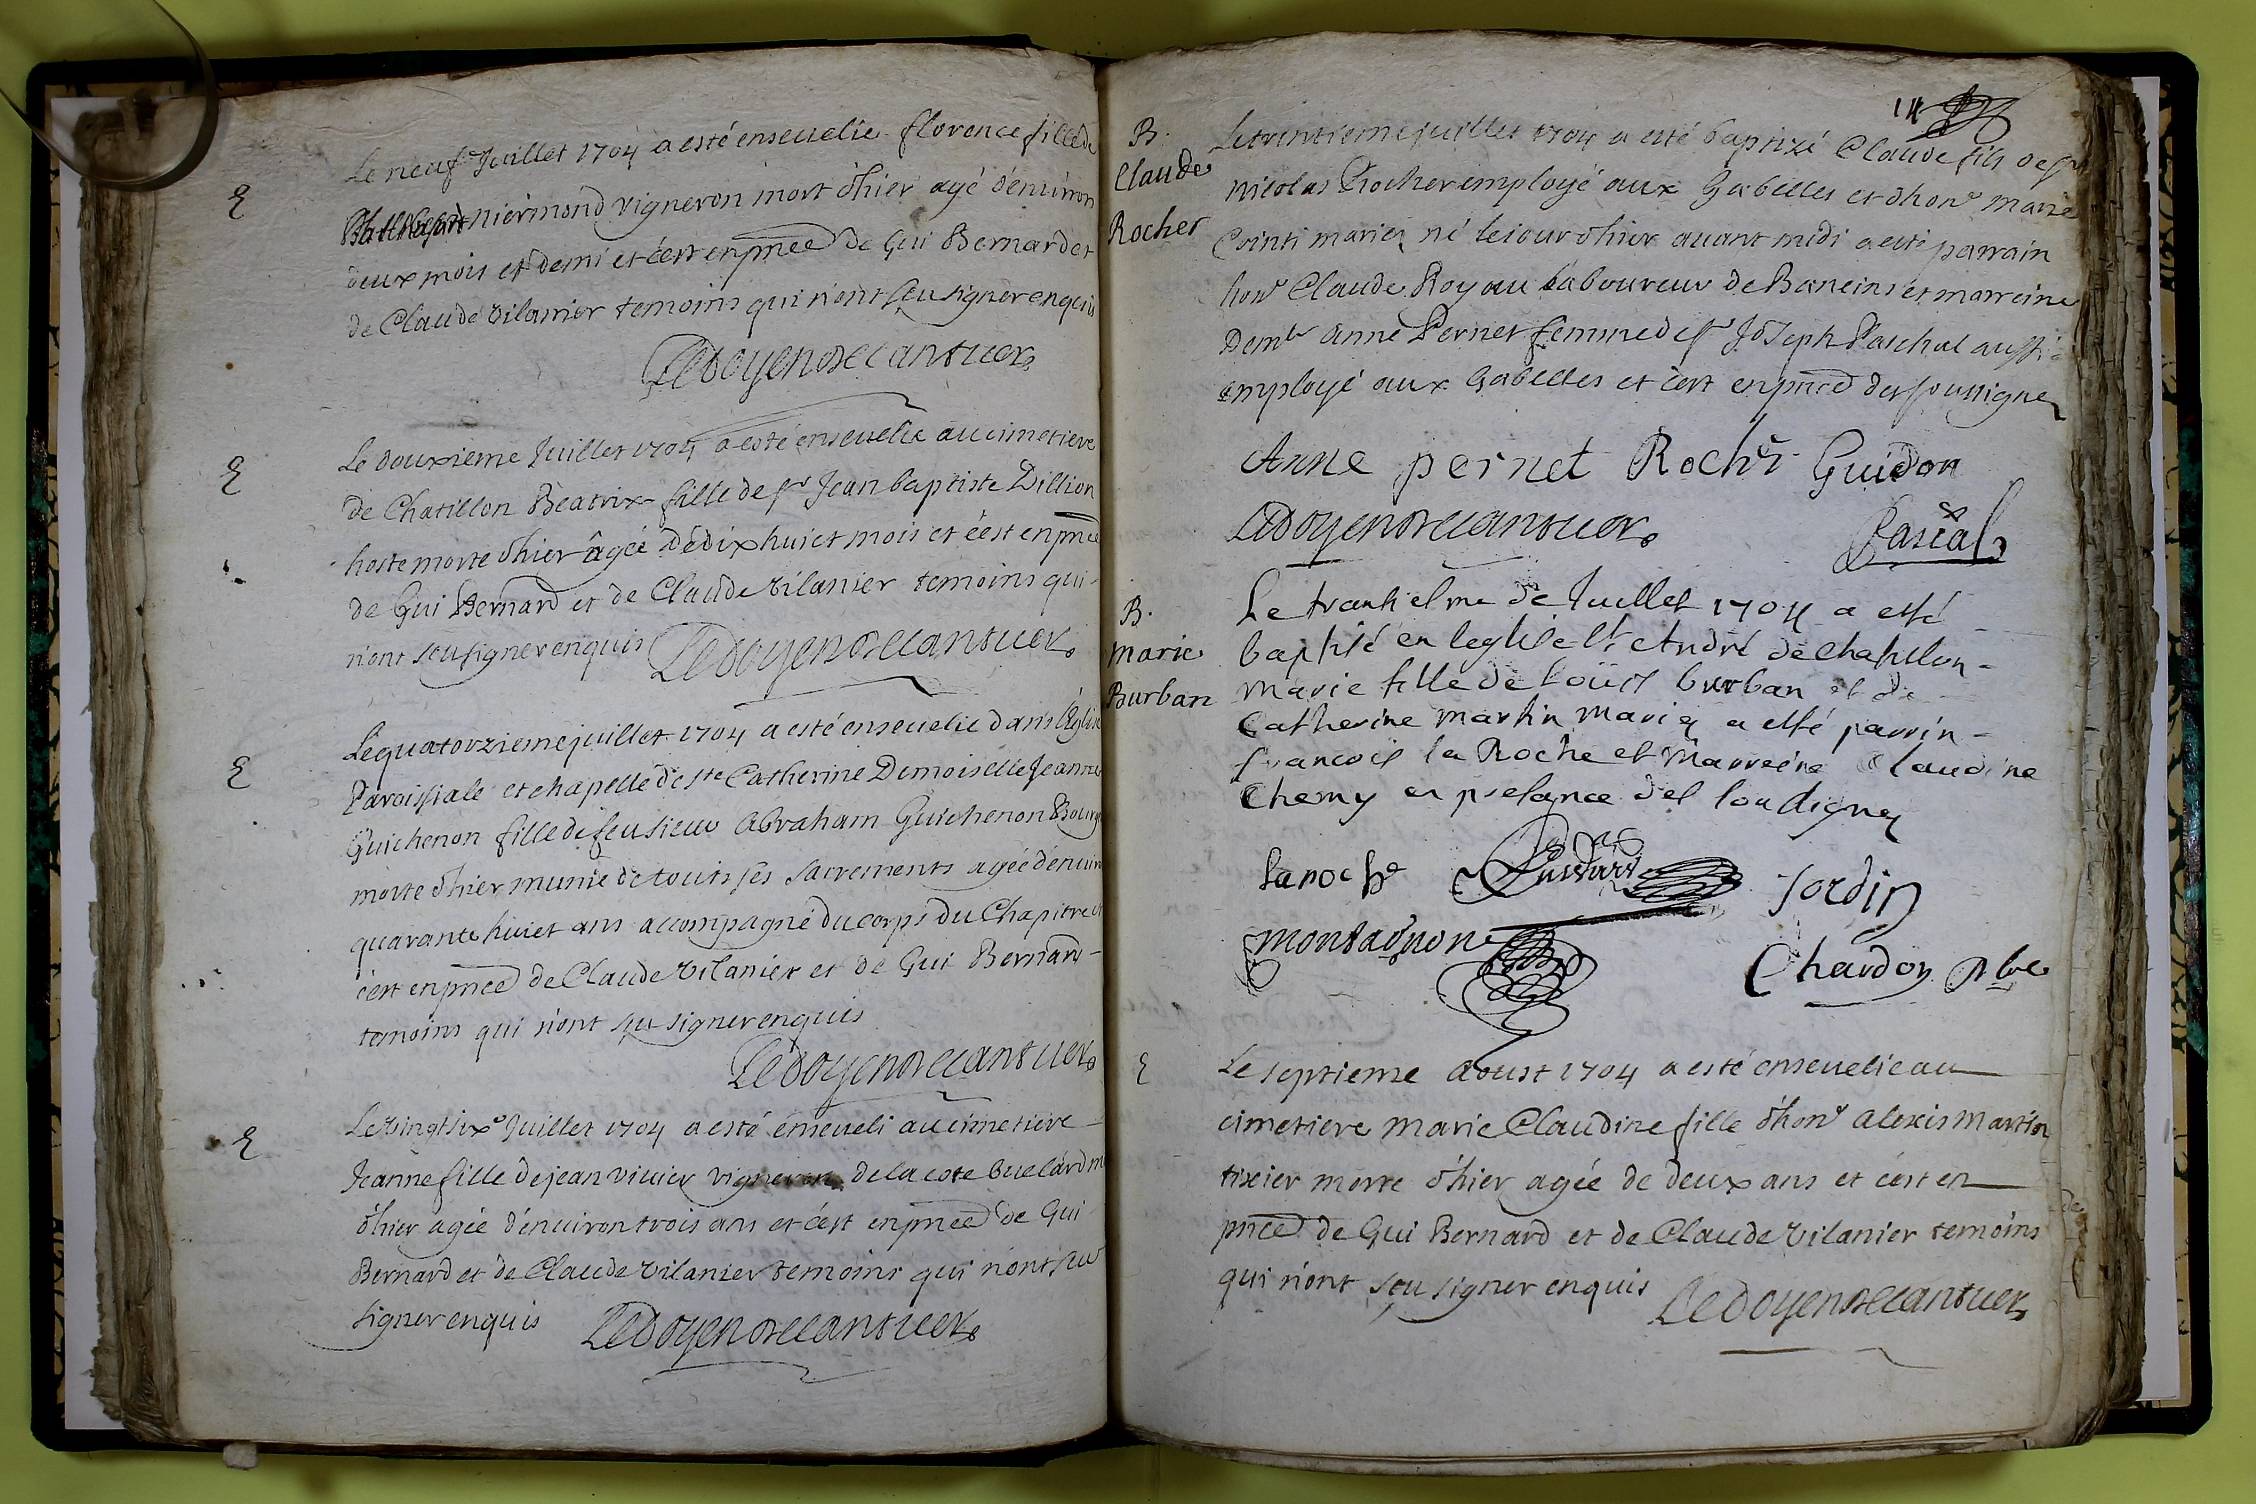 E
Le neuf Juillet 1704 a esté enseuelie florence fille de
niermond vigneron mort d'hier agé d'enuiron
deux mois et demi et c'est en pnce de Gui Bernard et
de Claude Vilanier temoins qui n'ont sçeu signer enquis
Ledoyen Decantuer
E
Le douxieme Juillet 1704 a esté enseuelie au cimetiere
de Chatillon Beatrix fille de sr Jean baptiste Dillion
hoste morte d'hier âgée de dix huict mois et c'est en pnce
de Gui Bernard et de Claude Vilanier temoins qui
n'ont seu signer enquis Ledoyen Decantuer
E
Le quatorzieme juillet 1704 a esté enseuelie dans l'Eglise
Paroissiale et chapelle de ste Catherine Demoiselle Jeanne
Guichenon fille de feu sieur Abraham Guichenon Bourg
morte d'hier munie de touts ses sacrements agée d'enuiro
quarante huict ans accompagné du corps du Chapitre et
c'est en pnce de Claude Vilanier et de Gui Bernard
temoins qui n'ont sçu signer enquis
Ledoyen Decantuer
E
Le vingt sixe Juillet 1704 a esté enseueli au cimetiere
Jeanne fille de jean viuier vigneron de la cote buelard m
d'hier agée d'enuiron trois ans et c'est en pnce de Gui
Bernard et de Claude Vilanier temoins qui n'ont sçu
signer enquis Ledoyen Decantuer
14
B.
Claude
Rocher
Le trintieme juillet 1704 a esté baptizé Claude fils de sr
Nicolas Rocher employé aux Gabelles et d'honе marie
Cointi mariez né le jour d'hier auant midi a esté parrain
honе Claude Royau laboureur de Baneins et marreine
Demlle Anne Pernet femme de sr Joseph Paschal aussi
employé aux Gabelles et c'est en pnce des soussignez
Anne pernet Rocher Guidon
Ledoyen Decantuer Pascal
B.
Marie
Burban
Le trantiesme de Juillet 1704 a esté
baptisé en leglise st André de chatillon
Marie fille de Loüis burban et de
Catherine martin Mariez a esté parrin
francois la Roche et Marreine Claudine
Chemy en presance des soussignez
Laroche Jordin
montagnone
Chardon pbre
E
Le septieme aoust 1704 a esté enseuelie au
cimetiere Marie Claudine fille d'honе Alexis Martin
tixier morte d'hier agée de deux ans et c'est en
pnce de Gui Bernard et de Claude Vilanier temoins
qui n'ont sçeu signer enquis Ledoyen Decantuer